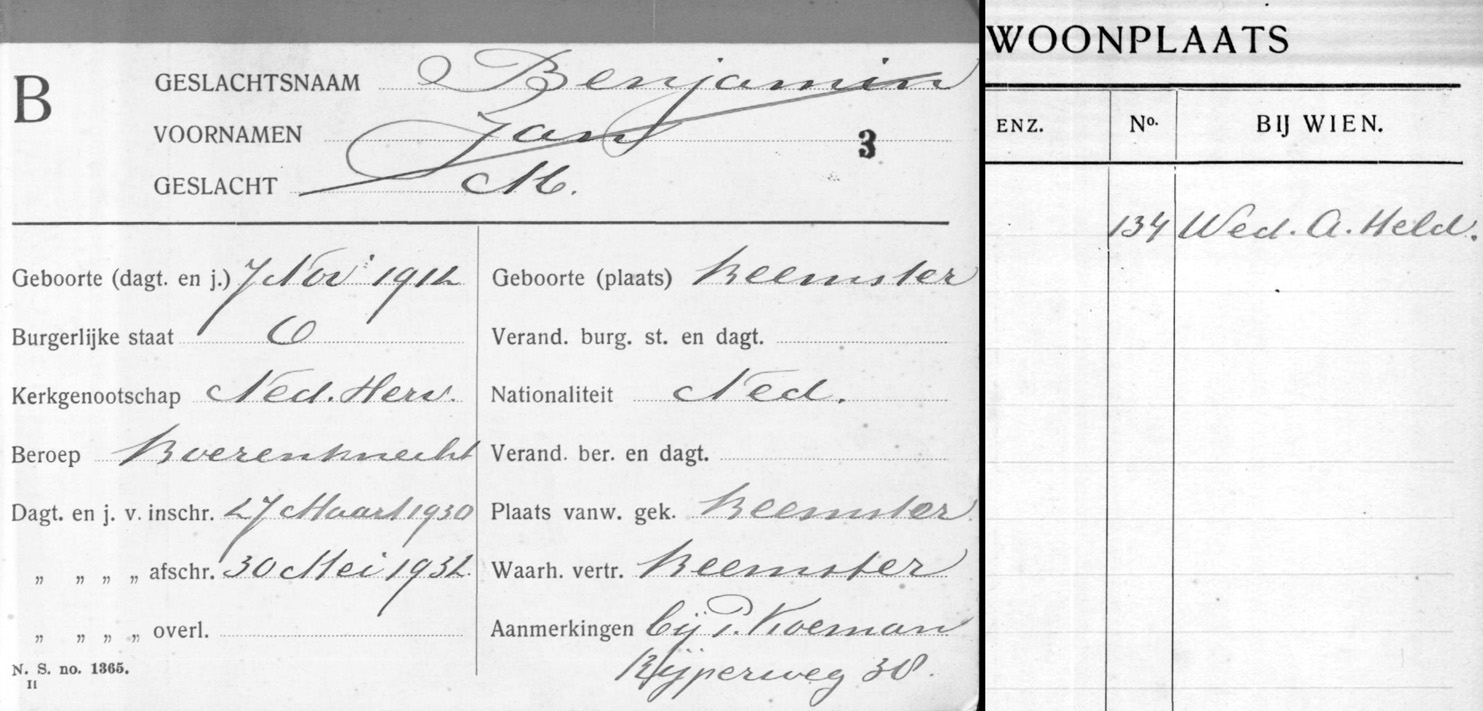 B
GESLACHTSNAAM Benjamin
VOORNAMEN Jan
3
GESLACHT M.
Geboorte (dagt. en j.) 7 Nov 1912
Geboorte (plaats) Beemster
Burgerlijke staat O
Verand. burg. st. en dagt.
Kerkgenootschap Ned. Herv.
Nationaliteit Ned.
Beroep Boerenknecht
Verand. ber. en dagt.
Dagt. en j. v. inschr. 27 Maart 1930
Plaats vanw. gek. Beemster
„ „ „ „ afschr. 30 Mei 1932
Waarh. vertr. Beemster
„ „ „ „ overl.
Aanmerkingen bij P. Koeman
Rijperweg 38.
N. S. no. 1365.
II
WOONPLAATS
ENZ. No. BIJ WIEN.
134 Wed. A. Held.